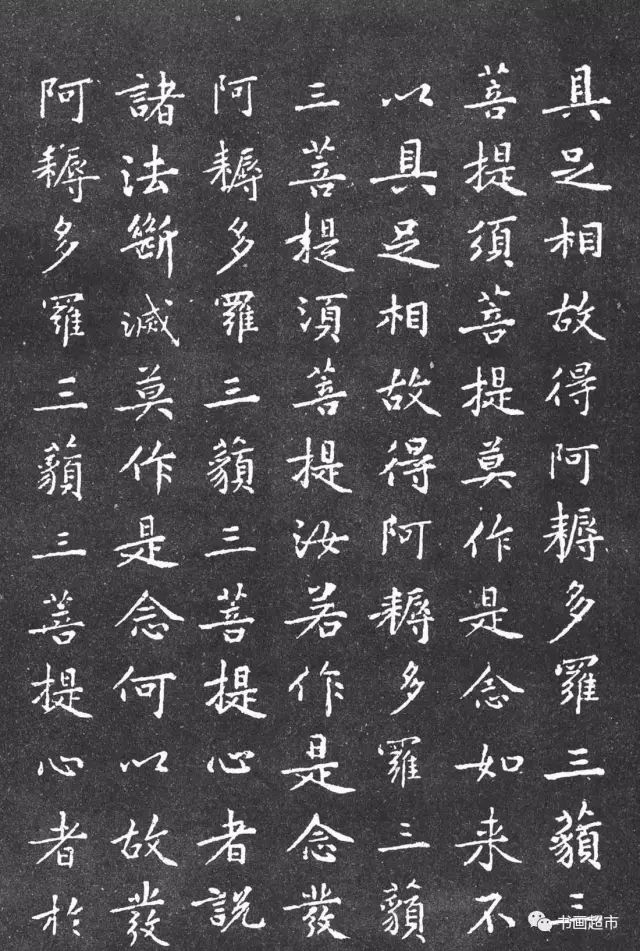 具足相故得阿耨多羅三藐三
菩提須菩提莫作是念如来不
以具足相故得阿耨多羅三藐
三菩提須菩提汝若作是念發
阿耨多羅三藐三菩提心者説
諸法斷滅莫作是念何以故發
阿耨多羅三藐三菩提心者於
书画超市